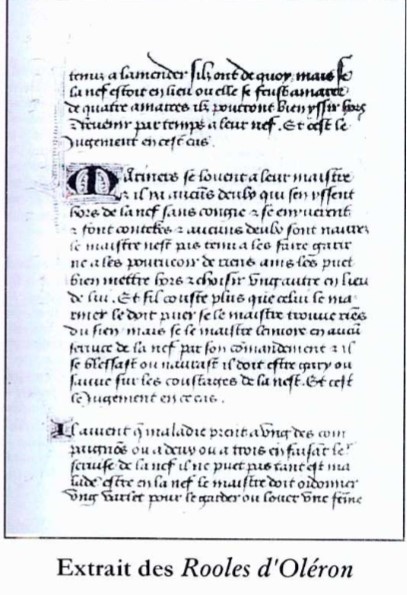 tenuz a lamender silz ont de quoy mais se
la nef estoit en lieu ou elle se feust amaree
de quatre amarres ilz pourront bien yssir hors
& revenir par temps a leur nef. Et cest le
Jugement en cest cas.
Mariners se louent a leur maistre
& il ny aucūs deulx qui sen yssent
hors de la nef sans congie & se enyvrent
& font contekes & aucuns deulx sont naurez
le maistre nest pas tenu a les faire garir
ne a les pourveoir de riens ains les puet
bien mettre hors & choisir ung autre en lieu
de lui. Et sil couste plus que celui le ma
riner le doit paier se le maistre trouve riēs
du sien mais se le maistre lenvoie en aucū
service de la nef par son cōmandement & il
se blessast ou navrast il doit estre gary ou
sauve sur les coustages de la neff. Et cest
le Jugement en ce cas.
Il avient q̄ maladie prent a ung des com
paignōs ou a deux ou a trois en faisāt le
servise de la nef il ne puet pas tant est ma
lade estre en la nef le maistre doit ordonner
ung varlet pour le garder ou louer une fēme
Extrait des Rooles d'Oléron